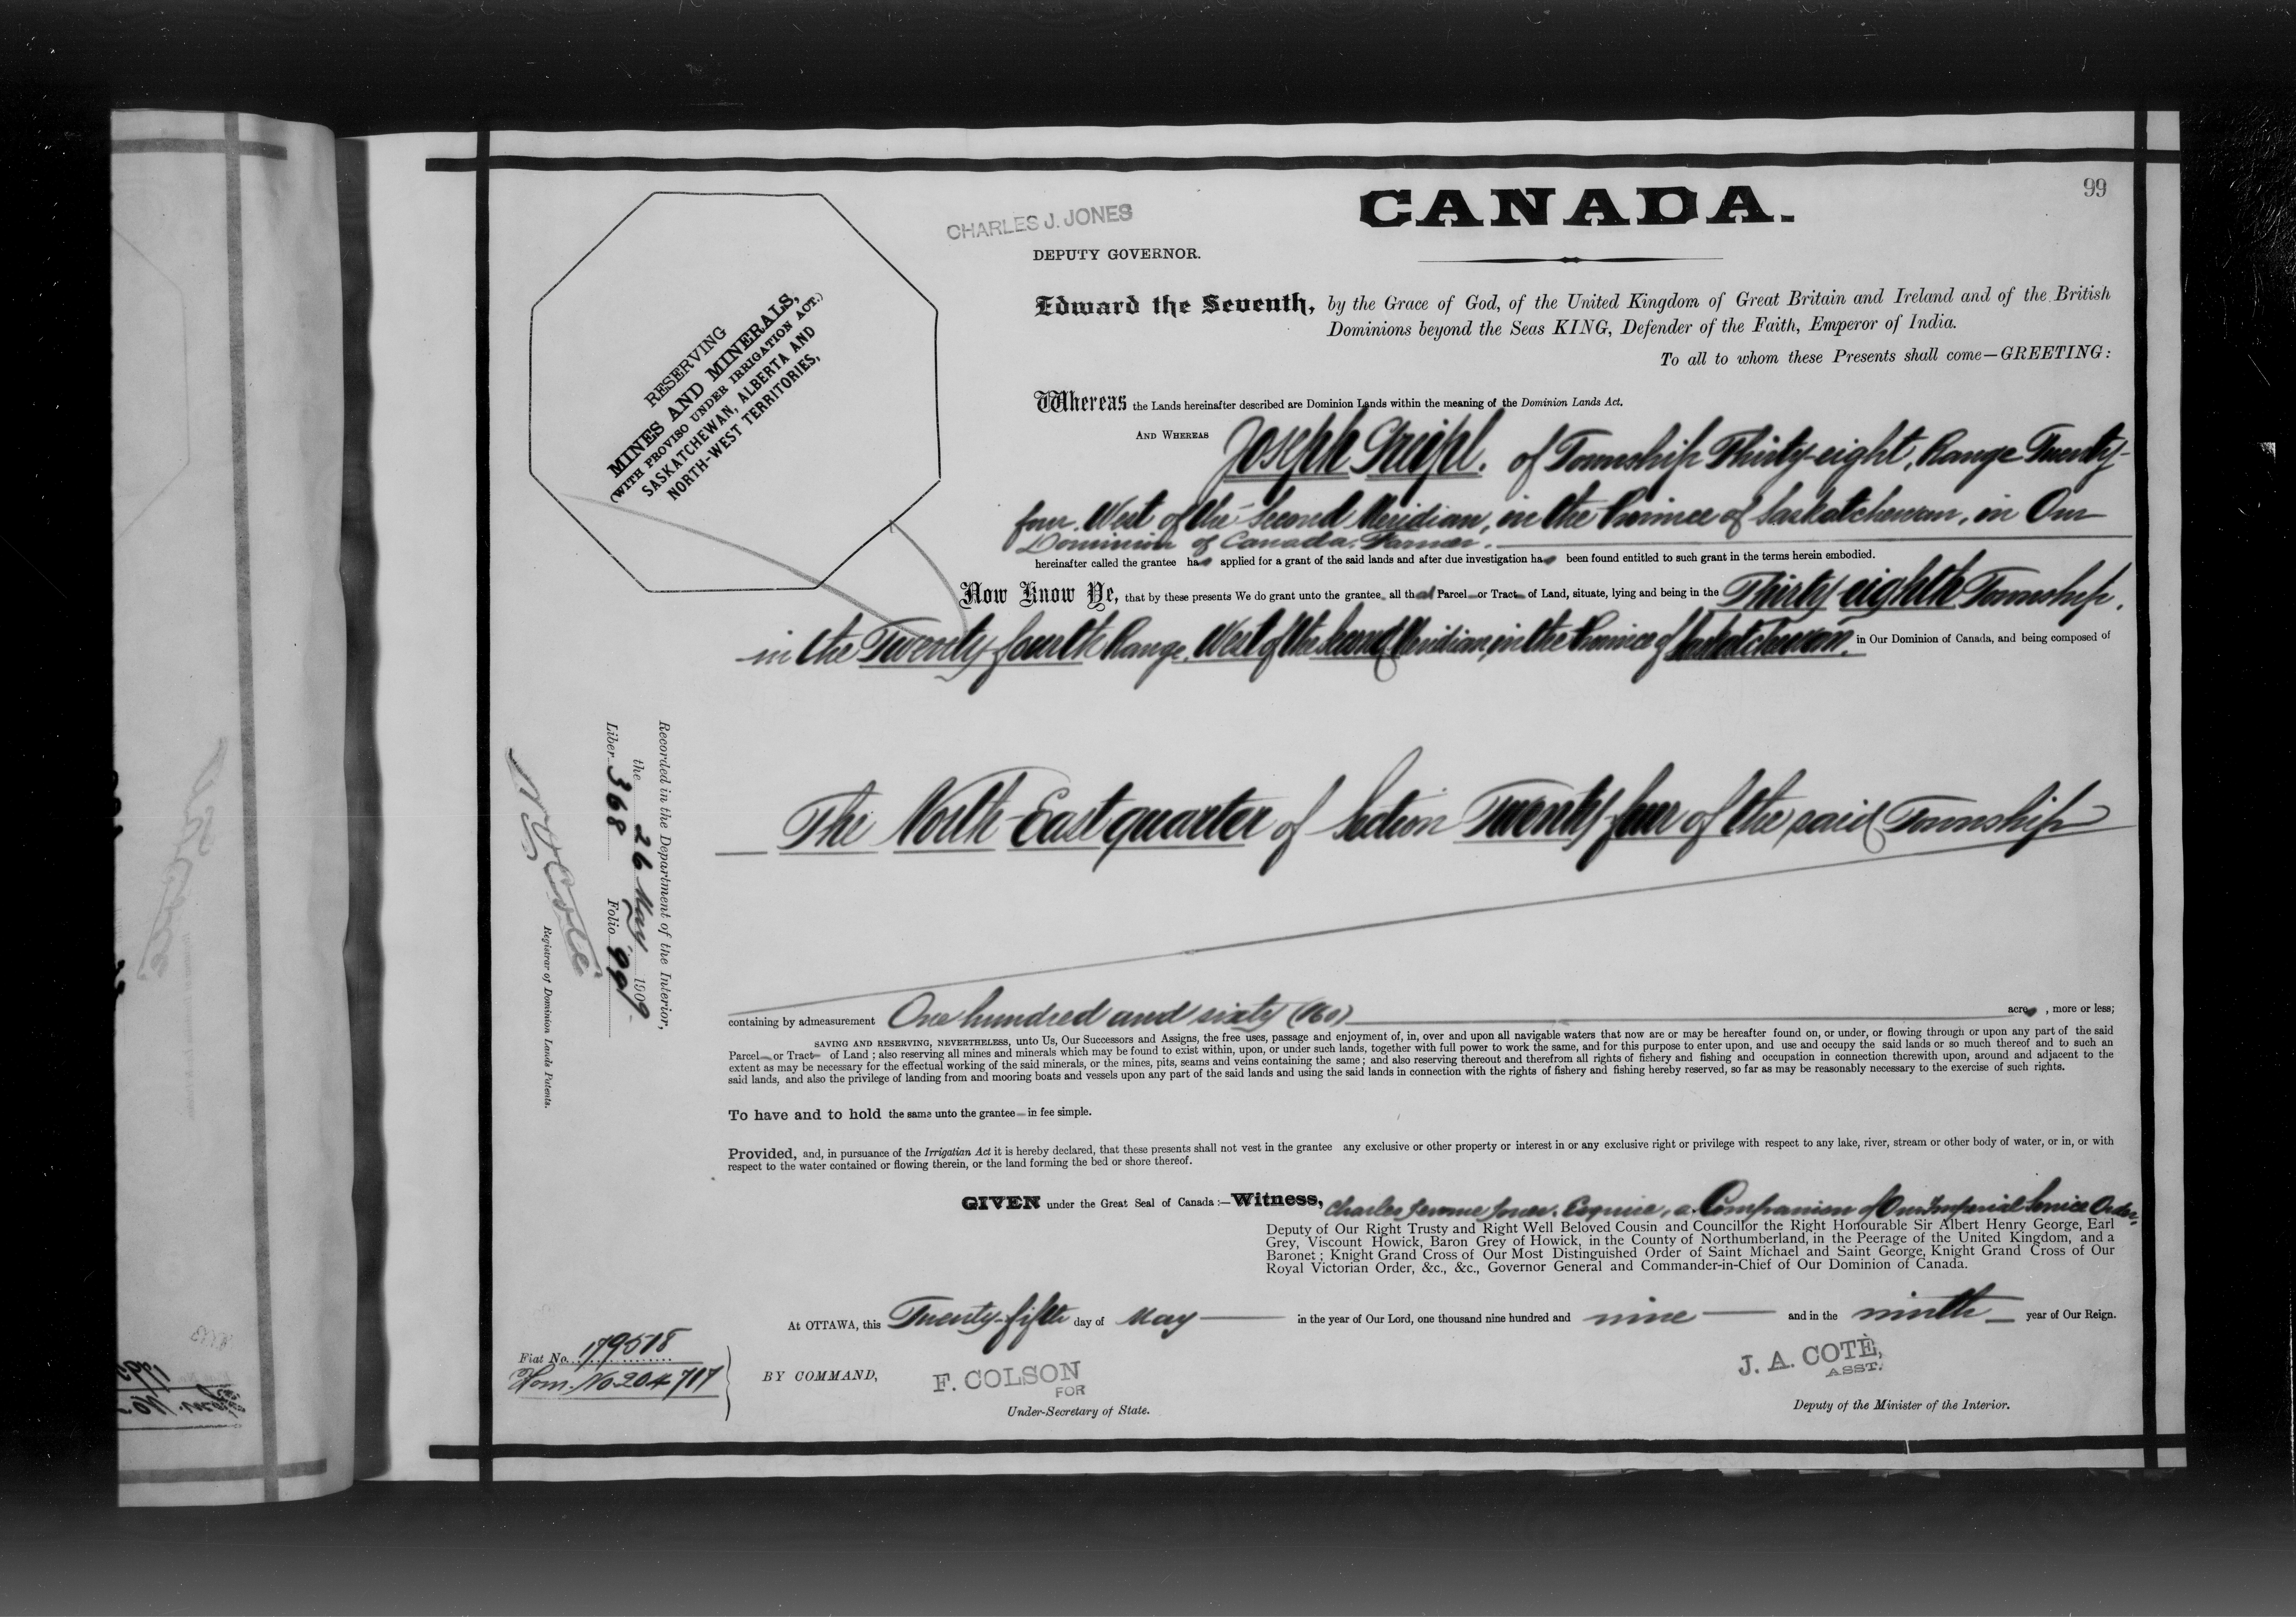 99
CHARLES J. JONES
CANADA.
DEPUTY GOVERNOR.
RESERVING
MINES AND MINERALS,
(WITH PROVISO UNDER IRRIGATION ACT.)
SASKATCHEWAN, ALBERTA AND
NORTH-WEST TERRITORIES,
Edward the Seventh, by the Grace of God, of the United Kingdom of Great Britain and Ireland and of the British
Dominions beyond the Seas KING, Defender of the Faith, Emperor of India.
To all to whom these Presents shall come—GREETING:
Whereas the Lands hereinafter described are Dominion Lands within the meaning of the Dominion Lands Act.
AND WHEREAS Joseph of Township Thirty-eight, Range Twenty-
four West of the Second Meridian, in the Province of Saskatchewan, in Our
Dominion of Canada, Farmer.
hereinafter called the grantee has applied for a grant of the said lands and after due investigation has been found entitled to such grant in the terms herein embodied.
Now Know Ye, that by these presents We do grant unto the grantee all that Parcel or Tract of Land, situate, lying and being in the Thirty-eighth Township,
in the Twenty-fourth Range, West of the Second Meridian, in the Province of Saskatchewan, in Our Dominion of Canada, and being composed of
The North East quarter of Section Twenty-four of the said Township
containing by admeasurement One hundred and sixty (160) acres, more or less;
SAVING AND RESERVING, NEVERTHELESS, unto Us, Our Successors and Assigns, the free uses, passage and enjoyment of, in, over and upon all navigable waters that now are or may be hereafter found on, or under, or flowing through or upon any part of the said
Parcel or Tract of Land; also reserving all mines and minerals which may be found to exist within, upon, or under such lands, together with full power to work the same, and for this purpose to enter upon, and use and occupy the said lands or so much thereof and to such an
extent as may be necessary for the effectual working of the said minerals, or the mines, pits, seams and veins containing the same; and also reserving thereout and therefrom all rights of fishery and fishing and occupation in connection therewith upon, around and adjacent to the
said lands, and also the privilege of landing from and mooring boats and vessels upon any part of the said lands and using the said lands in connection with the rights of fishery and fishing hereby reserved, so far as may be reasonably necessary to the exercise of such rights.
To have and to hold the same unto the grantee in fee simple.
Provided, and, in pursuance of the Irrigatian Act it is hereby declared, that these presents shall not vest in the grantee any exclusive or other property or interest in or any exclusive right or privilege with respect to any lake, river, stream or other body of water, or in, or with
respect to the water contained or flowing therein, or the land forming the bed or shore thereof.
GIVEN under the Great Seal of Canada:—Witness, Charles Jerome Jones, Esquire, a Companion of Our Imperial Service Order,
Deputy of Our Right Trusty and Right Well Beloved Cousin and Councillor the Right Honourable Sir Albert Henry George, Earl
Grey, Viscount Howick, Baron Grey of Howick, in the County of Northumberland, in the Peerage of the United Kingdom, and a
Baronet; Knight Grand Cross of Our Most Distinguished Order of Saint Michael and Saint George, Knight Grand Cross of Our
Royal Victorian Order, &c., &c., Governor General and Commander-in-Chief of Our Dominion of Canada.
At OTTAWA, this Twenty-fifth day of May in the year of Our Lord, one thousand nine hundred and nine and in the ninth year of Our Reign.
BY COMMAND,
F. COLSON
FOR
Under-Secretary of State.
J. A. COTÉ,
ASST.
Deputy of the Minister of the Interior.
Recorded in the Department of the Interior,
the 26 May 1909
Liber 368 Folio 99
Registrar of Dominion Lands Patents.
Fiat No. 179518
Hom. No. 204717